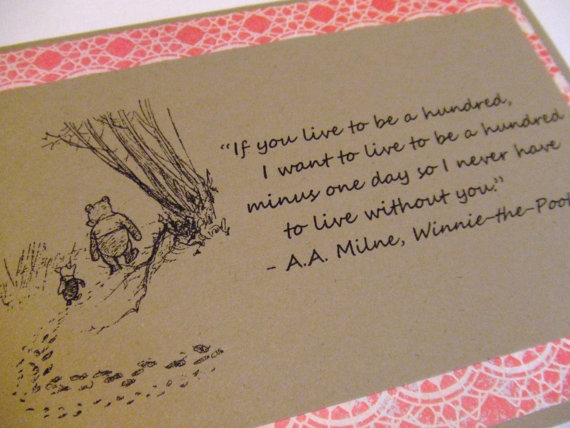 “If you live to be a hundred,
I want to live to be a hundred
minus one day so I never have
to live without you.”
- A.A. Milne, Winnie-the-Pooh